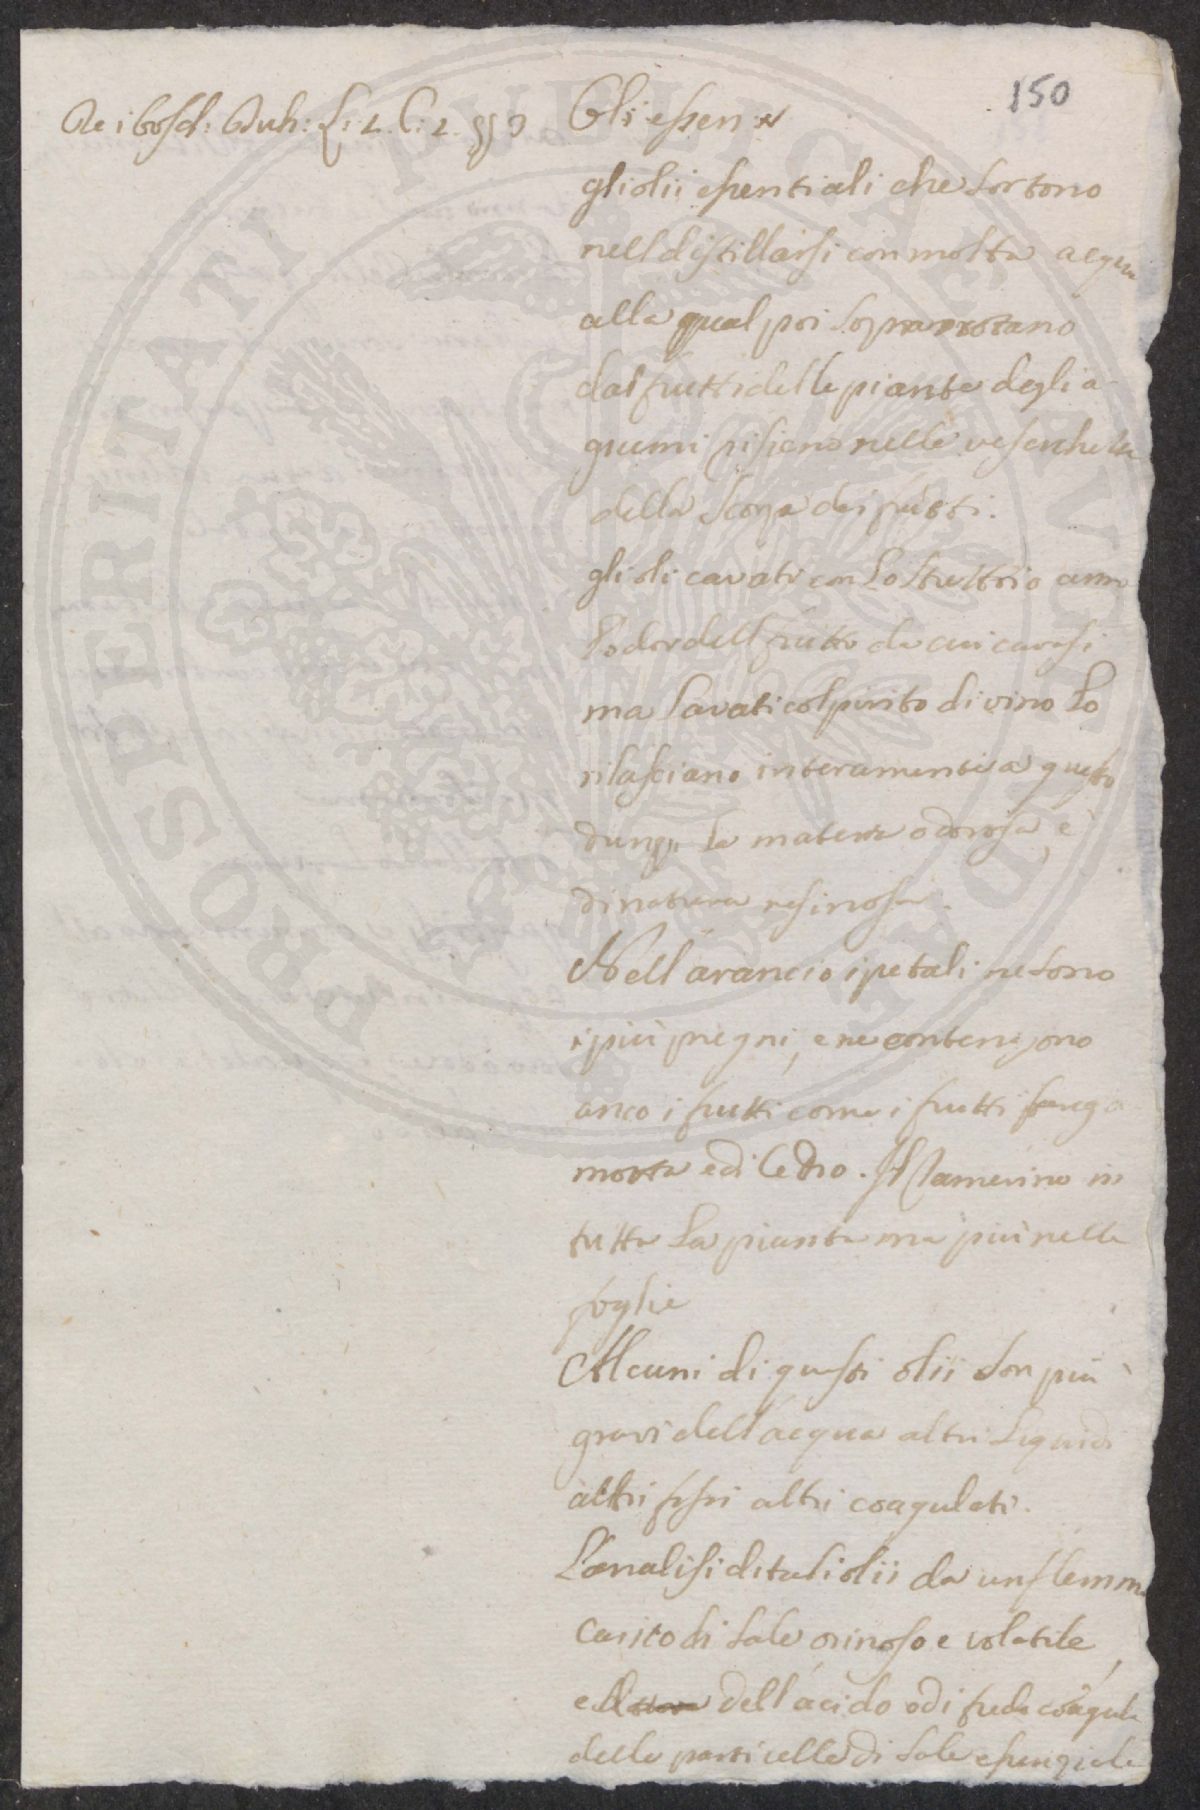 150
De i bosch: Duh: L: 2. C: 2. §§ 3
Gli essen
gli olii essentiali che sortono
nell distillarsi con molta acqua
alla qual poi sopranotano
dai frutti delle piante degli a-
grumi risieno nelle vescichette
della scorza dei frutti.
gli oli cavati con lo strettoio anno
l'odor dell frutto da cui cavasi
ma lavati col spirito di vino lo
rilasciano interamente a questo
dunq. la materia odorosa è
di natura resinosa.
Nell'arancio i petali ne sono
i più pregni, e ne contengono
anco i frutti come i frutti
motta e di Cedro. Il Ramerino in
tutta la pianta ma più nelle
foglie
Alcuni di questi olii son più
gravi dell'acqua altri liquidi
altri fissi altri coagulati.
L'analisi di tali olii da un flemma
carico di sale orinoso e volatile
e dell'acido o di fredo coagula
delle particelle di sale essenziale
PROSPERITATI PUBLICAE AUGENDAE